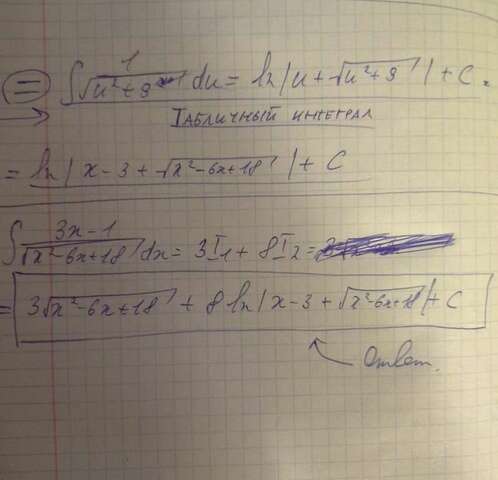 = ∫ 1/√(u²+9) du = ln|u + √(u²+9)| + C.
Табличный интеграл
= ln|x-3+√(x²-6x+18)| + C
∫ (3x-1)/√(x²-6x+18) dx = 3I₁ + 8I₂ =
= 3√(x²-6x+18) + 8 ln|x-3+√(x²-6x+18)| + C
Ответ.